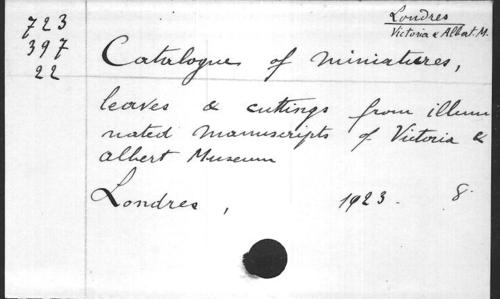 723
397
22
Londres
Victoria & Albert. M.
Catalogue of miniatures,
leaves & cuttings from illum
nated manuscripts of Victoria &
albert Museum
Londres, 1923. 8.